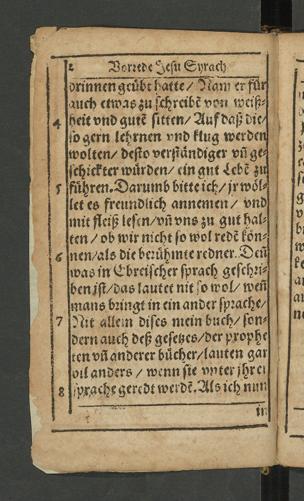 2 Vorrede Jesu Syrach
drinnen geübt hatte / Nam er für
auch etwas zu schreibē von weiß-
4 heit vnd gutē sitten / Auf daß die /
so gern lehrnen vnd klug werden
wolten / desto verständiger vñ ge-
schickter würden / ein gut Lebē zu
5 führen. Darumb bitte ich / jr wöl-
let es freundlich annemen / vnd
mit fleiß lesen / vñ vns zu gut hal-
ten / ob wir nicht so wol redē kön-
6 nen / als die berühmte redner. Deñ
was in Ebreischer sprach geschri-
ben ist / das lautet nit so wol / weñ
mans bringt in ein ander sprache /
7 Nit allein dises mein buch / son-
dern auch deß gesetzes / der prophe
ten vñ anderer bücher / lauten gar
vil anders / wenn sie vnter jhrer
8 sprache geredt werdē. Als ich nun
in